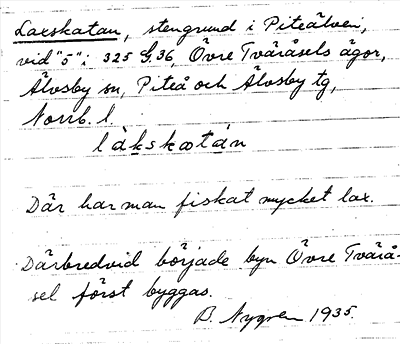 Laxskatan, stengrund i Piteälven,
vid "ö" i 325 G.36, Övre Tväråsels ägor,
Älvsby sn, Piteå och Älvsby tg,
Norrb. l.
låkskatån
Där har man fiskat mycket lax.
Därbredvid började byn Övre Tvärå-
sel först byggas.
B. Nygren 1935.